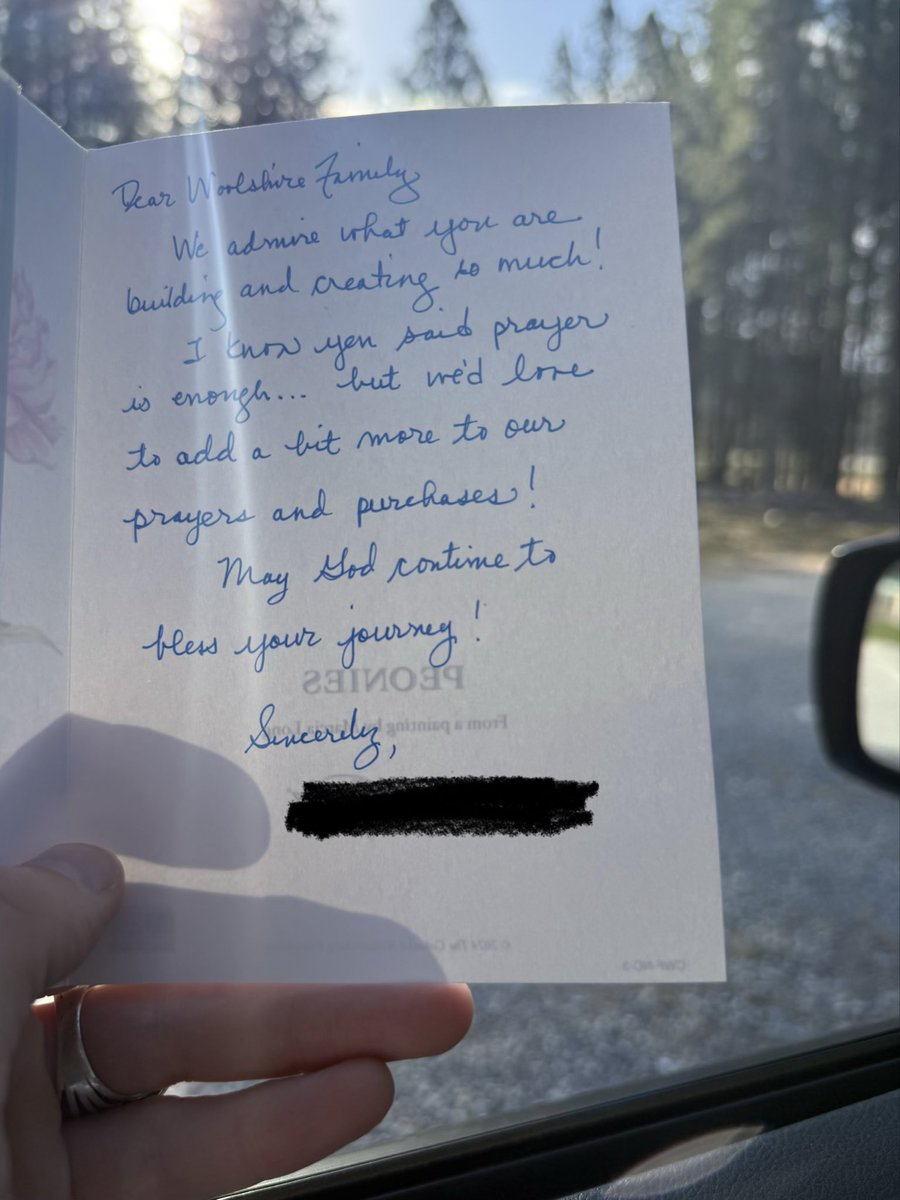 Dear Woolshire Family
We admire what you are
building and creating so much!
I know you said prayer
is enough... but we'd love
to add a bit more to our
prayers and purchases!
May God continue to
bless your journey!
PEONIES
From a painting by Marcia Long
Sincerely,
© 2024 The
CWF-NC-3